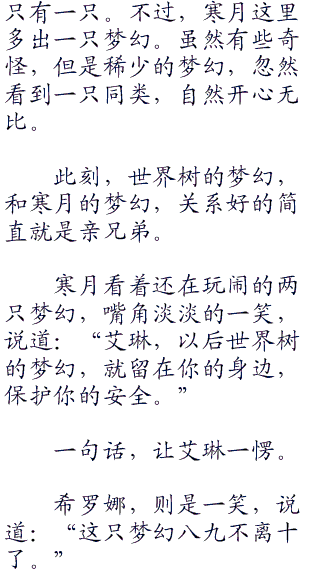 只有一只。不过，寒月这里
多出一只梦幻。虽然有些奇
怪，但是稀少的梦幻，忽然
看到一只同类，自然开心无
比。
此刻，世界树的梦幻，
和寒月的梦幻，关系好的简
直就是亲兄弟。
寒月看着还在玩闹的两
只梦幻，嘴角淡淡的一笑，
说道：“艾琳，以后世界树
的梦幻，就留在你的身边，
保护你的安全。”
一句话，让艾琳一愣。
希罗娜，则是一笑，说
道：“这只梦幻八九不离十
了。”